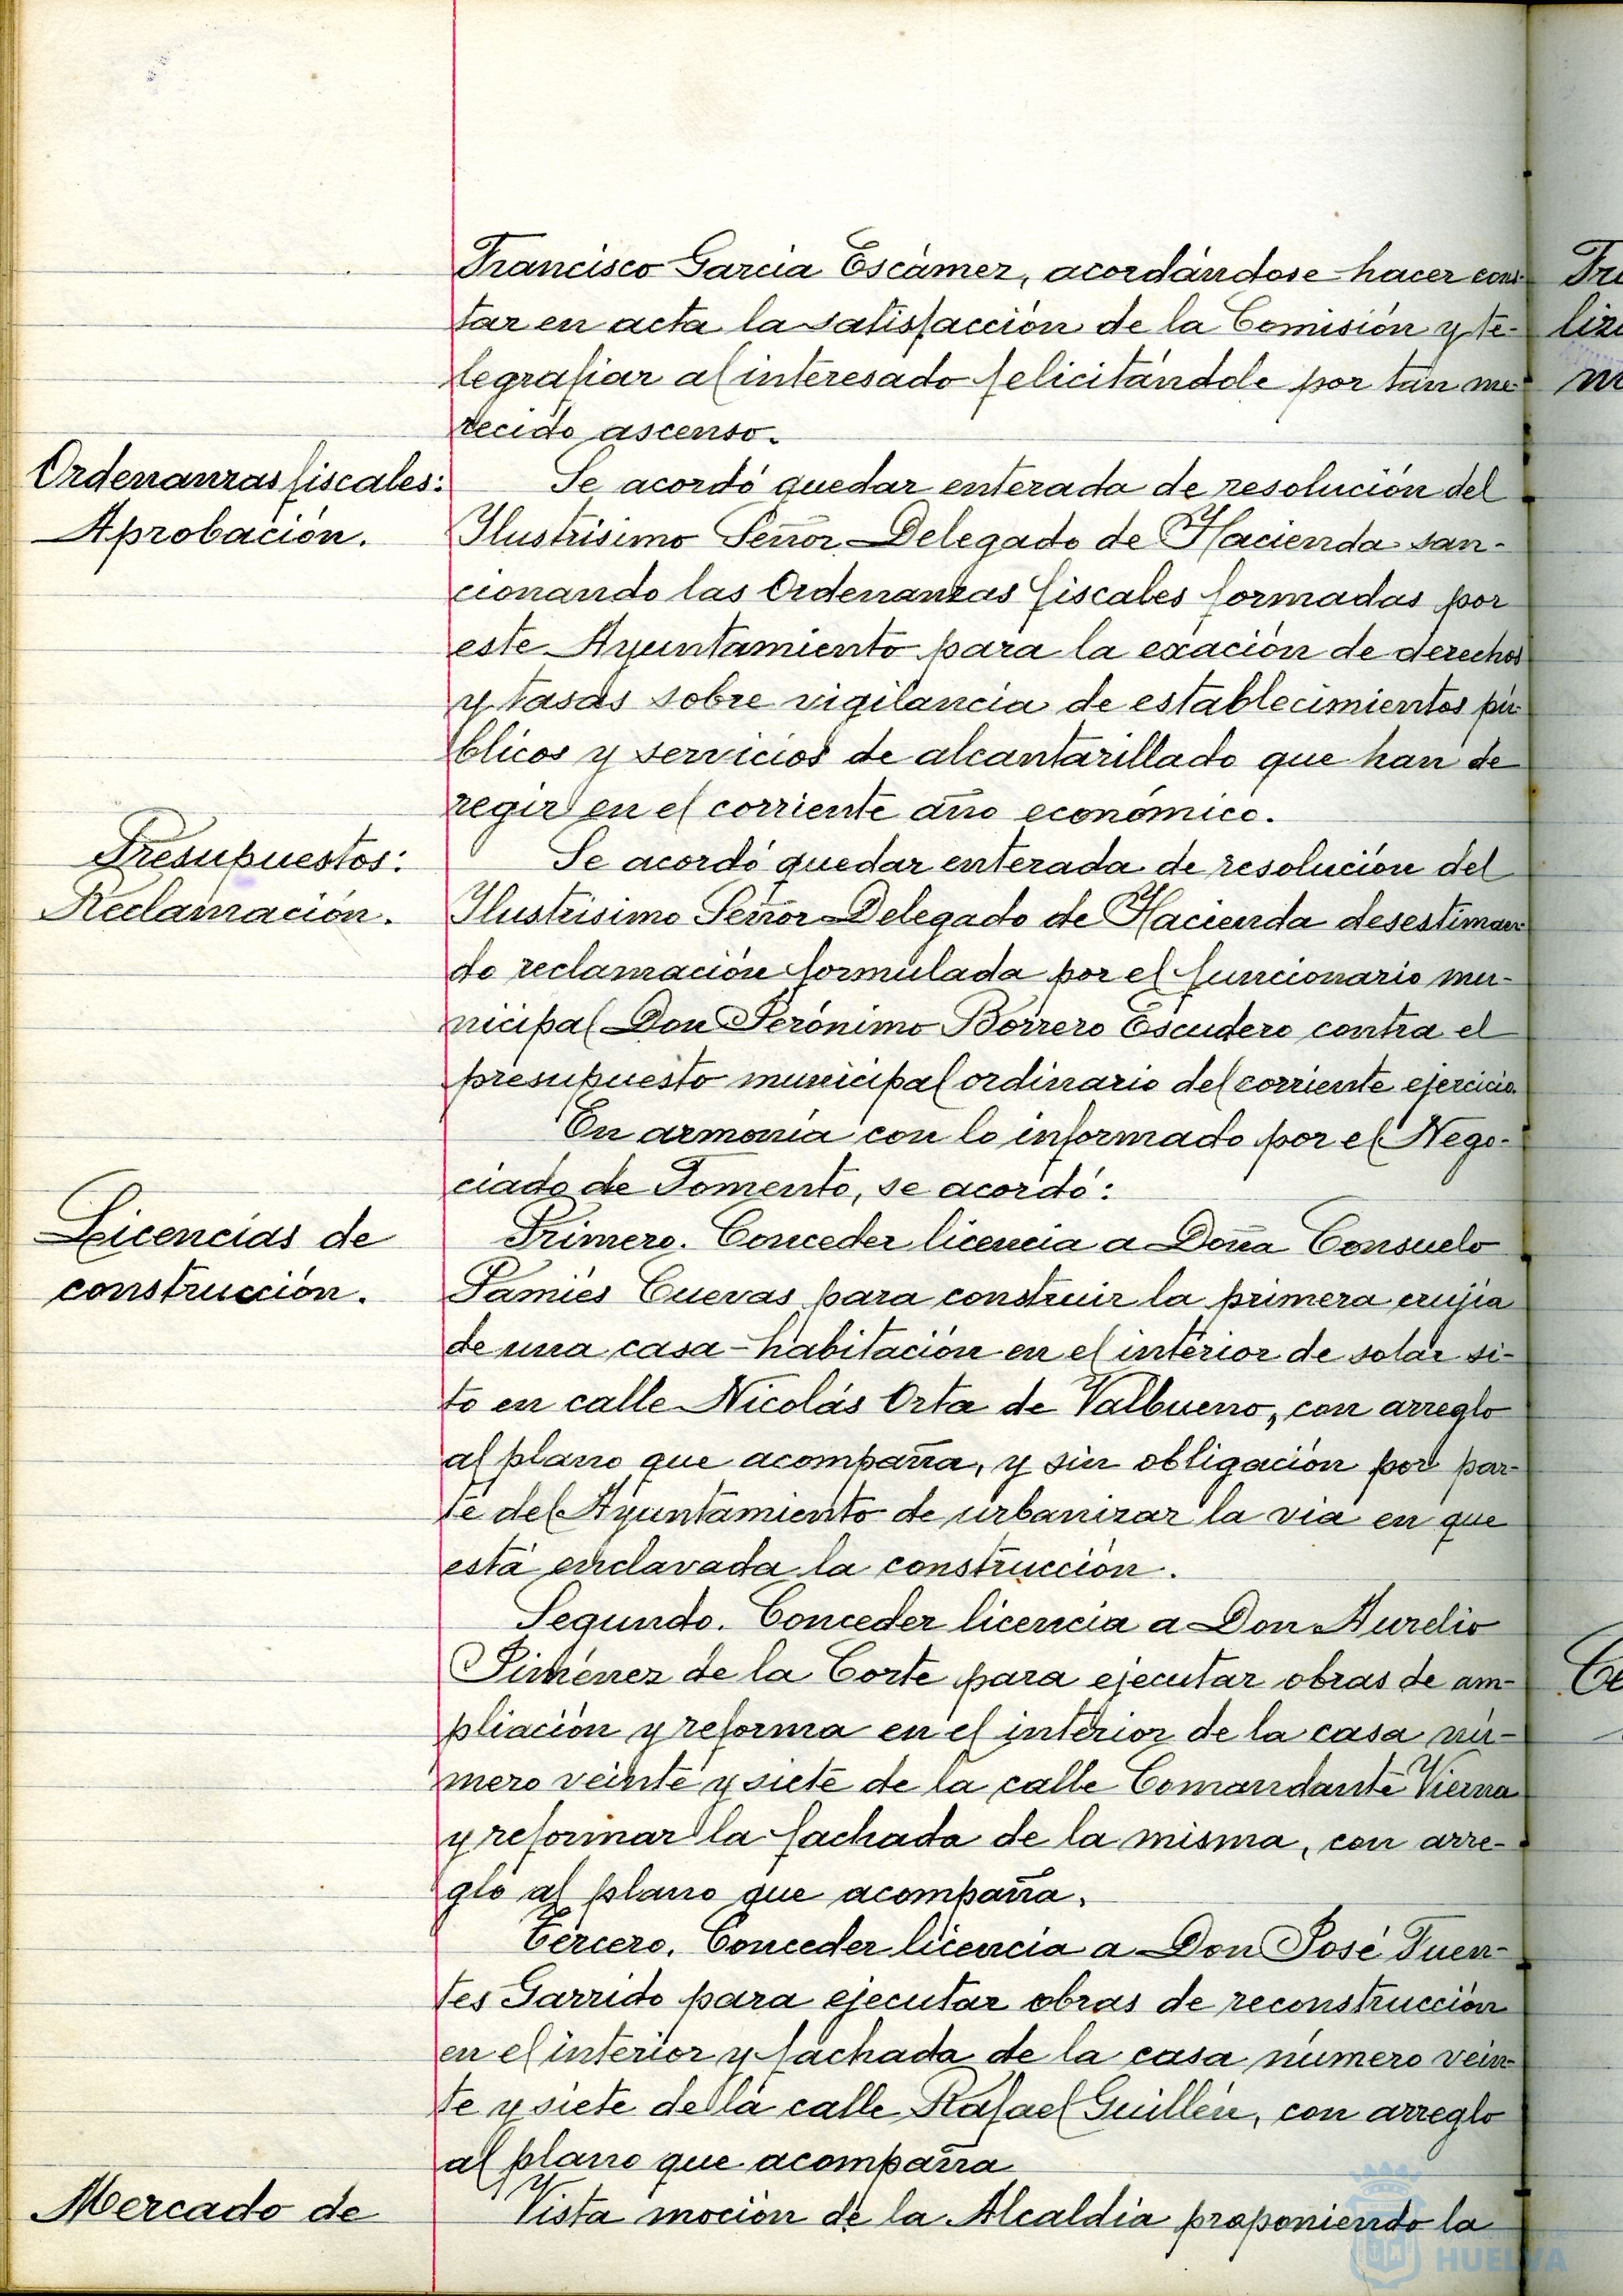 Francisco Garcia Escámez, acordándose hacer cons-
tar en acta la satisfacción de la Comisión y te-
legrafiar al interesado felicitándole por tan me-
recido ascenso.
Ordenanzas fiscales:
Aprobación.
Se acordó quedar enterada de resolución del
Ilustrisimo Señor Delegado de Hacienda san-
cionando las Ordenanzas fiscales formadas por
este Ayuntamiento para la exación de derechos
y tasas sobre vigilancia de establecimientos pú-
blicos y servicios de alcantarillado que han de
regir en el corriente año económico.
Presupuestos:
Reclamación.
Se acordó quedar enterada de resolución del
Ilustrisimo Señor Delegado de Hacienda desestiman-
do reclamación formulada por el funcionario mu-
nicipal Don Jerónimo Borrero Escudero contra el
presupuesto municipal ordinario del corriente ejercicio.
En armonia con lo informado por el Nego-
ciado de Fomento, se acordó:
Licencias de
construcción.
Primero. Conceder licencia a Doña Consuelo
Pamiés Cuevas para construir la primera crujia
de una casa-habitación en el interior de solar si-
to en calle Nicolás Orta de Valbueno, con arreglo
al plano que acompaña, y sin obligación por par-
te del Ayuntamiento de urbanizar la via en que
está enclavada la construcción.
Segundo. Conceder licencia a Don Aurelio
Jiménez de la Corte para ejecutar obras de am-
pliación y reforma en el interior de la casa nú-
mero veinte y siete de la calle Comandante Vierna
y reformar la fachada de la misma, con arre-
glo al plano que acompaña.
Tercero. Conceder licencia a Don José Fuen-
tes Garrido para ejecutar obras de reconstrucción
en el interior y fachada de la casa número vein-
te y siete de la calle Rafael Guillén, con arreglo
al plano que acompaña
Mercado de
Vista moción de la Alcaldia proponiendo la
HUELVA